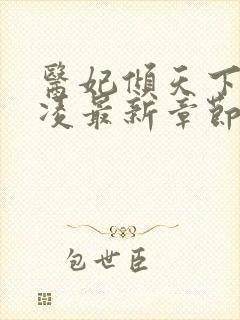 醫妃傾天下
凌最新章節
包世臣